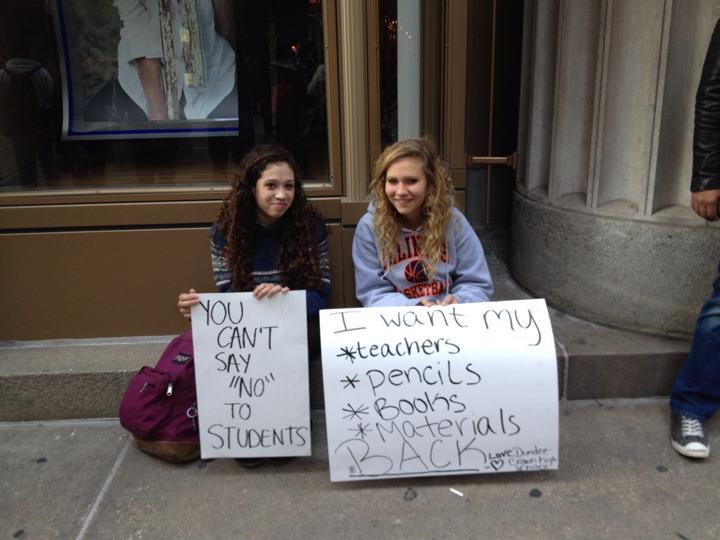 YOU
CAN'T
SAY
"NO"
TO
STUDENTS
ILLINOIS
BASKETBALL
I want my
*teachers
* pencils
* Books
* Materials
BACK
LOVE, Dundee-
Crown High
School